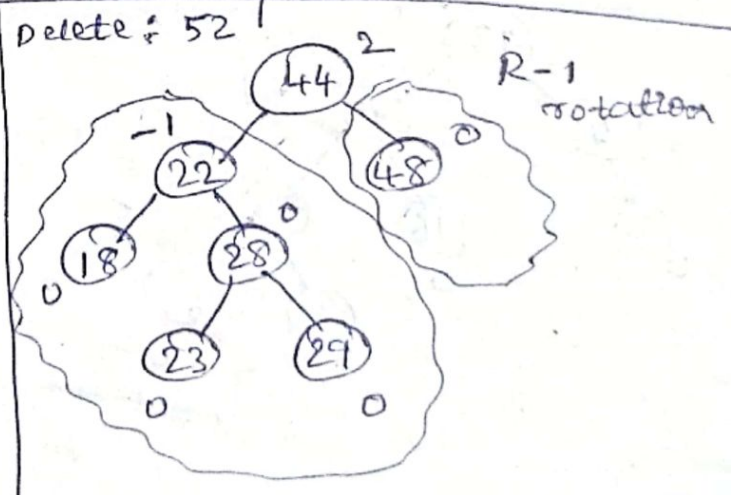 Delete: 52
2
44
R-1
rotation
-1
0
22
48
0
18
28
0
23
29
0
0